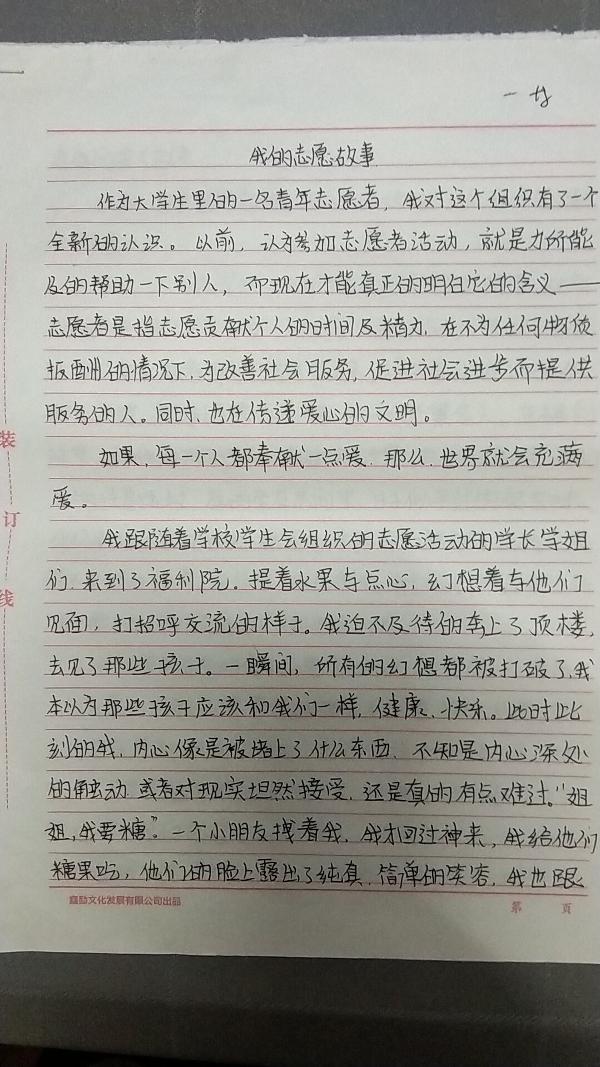 一 廿
我的志愿故事
作为大学生里的一名青年志愿者，我对这个组织有了一个
全新的认识。以前，认为参加志愿者活动，就是力所能
及的帮助一下别人，而现在才能真正的明白它的含义——
志愿者是指志愿贡献个人的时间及精力，在不为任何物质
报酬的情况下，为改善社会服务，促进社会进步而提供
服务的人。同时，也在传递爱心的文明。
如果，每一个人都奉献一点爱，那么，世界就会充满
爱。
我跟随着学校学生会组织的志愿活动的学长学姐
们，来到了福利院。提着水果与点心，幻想着与他们
见面，打招呼交流的样子。我迫不及待的奔上了顶楼，
去见了那些孩子。一瞬间，所有的幻想都被打破了，我
本以为那些孩子应该和我们一样，健康、快乐。此时此
刻的我，内心像是被堵上了什么东西，不知是内心深处
的触动，或者对现实坦然接受，还是真的有点难过。“姐
姐，我要糖”。一个小朋友拽着我，我才回过神来，我给他们
糖果吃，他们的脸上露出了纯真、简单的笑容，我也跟
装
订
线
鑫励文化发展有限公司出品
第 页